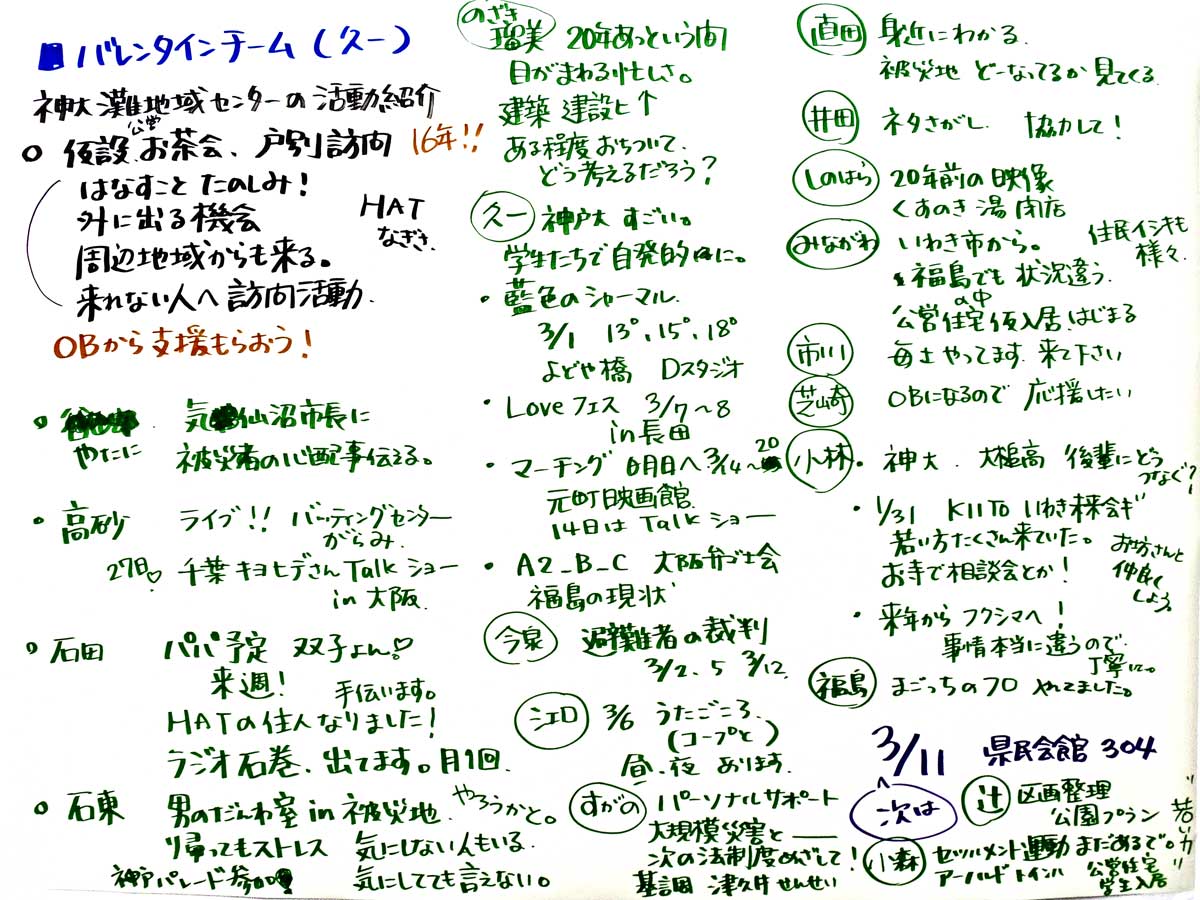 ■ バレンタインチーム（久一）
神大 灘地域センターの活動紹介
公営
○ 仮設、お茶会、戸別訪問 16年!!
はなすこと たのしみ！
外に出る機会
HAT
なぎさ
周辺地域からも来る。
来れない人へ訪問活動
OBから支援もらおう！
やたに 気仙沼市長に
被災者の心配事伝える。
高砂 ライブ!! バッティングセンター
がらみ
27日♡ 千葉キヨヒデさん Talk ショー
in 大阪
石田 パパ予定 双子よん♡
来週！ 手伝います。
HATの住人なりました！
ラジオ石巻、出てます。月1回
石東 男のだんわ室 in 被災地 やろうかと。
帰ってもストレス 気にしない人もいる
神戸パレード参加 気にしてても言えない。
のざき
瑠美 20年あっという間
目がまわる忙しさ。
建築 建設ヒ↑
ある程度おちついて、
どう考えるだろう？
久一 神戸大 すごい。
学生たちで自発的に。
・藍色のシャーマル
3/1 13°、15°、18°
よどや橋 Dスタジオ
・Love フェス 3/7〜8
in 長田
・マーチング 明日へ 3/14〜20
元町映画館
14日は Talk ショー
・A2_B_C 大阪弁ゴ士会
福島の現状
今泉 避難者の裁判
3/2、5 3/12
江口 3/6 うたごころ
（コープと）
昼、夜 あります
すがの パーソナルサポート
大規模災害と――
次の法制度めざして！
基調 津久井せんせい
直田 身近にわかる
被災地 どーなってるか見てくる
井田 ネタさがし 協力して！
しのはら 20年前の映像
くすのき湯閉店
みながわ いわき市から。
住民イシキも
様々
福島でも状況違う
の中
公営住宅仮入居はじまる
市川 毎土やってます 来て下さい
芝崎 OBになるので 応援したい
小林・神大、大槌高 後輩にどう
つなぐ？
・1/31 KIITO いわき未来会ギ
若い方たくさん来ていた。
お寺で相談会とか！
お坊さんと
仲良く
しよう。
・来年から フクシマへ！
事情本当に違うので
丁寧に。
福島 まごっちのフロ やれてました。
3/11 県民会館 304
次は
辻 区画整理
公園プラン
"若い力"
小森 セツルメント運動 まだあるで。
アーノルド トインビ
公営住宅
学生入居